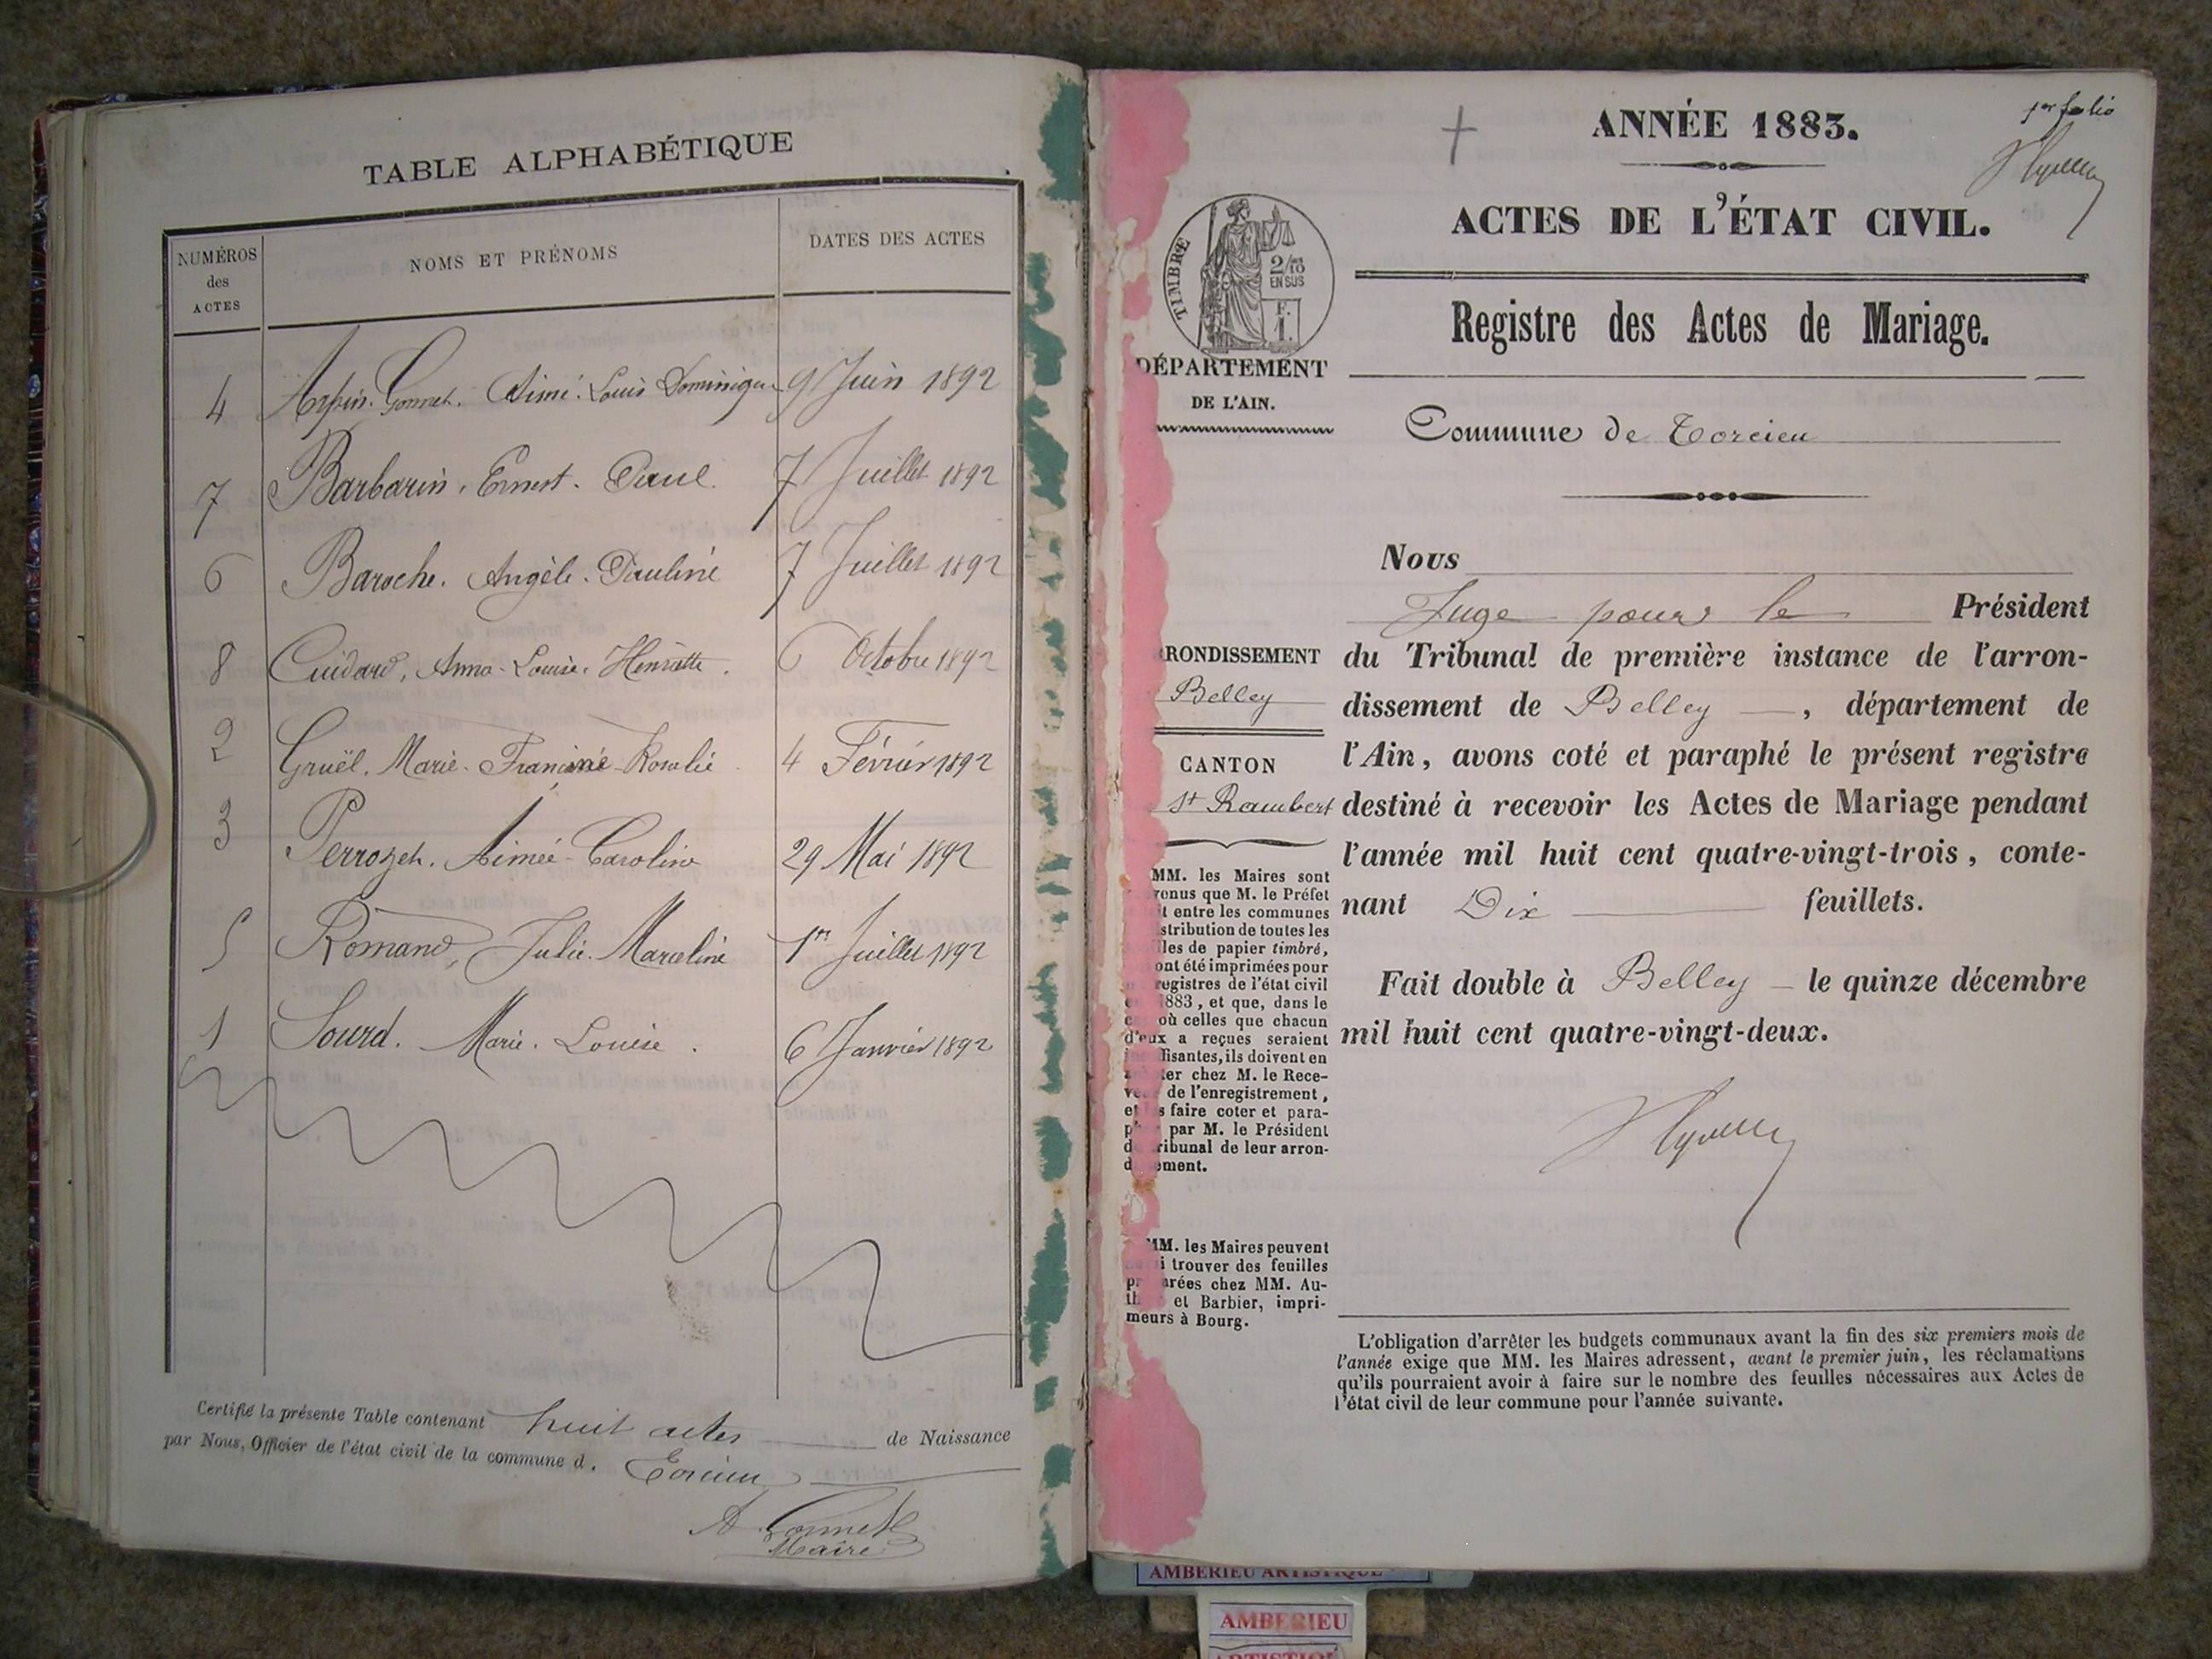 TABLE ALPHABÉTIQUE
NUMÉROS
des
ACTES
NOMS ET PRÉNOMS
DATES DES ACTES
4 Arpin-Gonnet. Aimé. Louis Dominique 9 Juin 1892
7 Barbarin. Ernest. Paul 7 Juillet 1892
6 Baroche. Angèle. Pauline 7 Juillet 1892
8 Cuidard, Anna-Louise. Henriette. 6 Octobre 1892
2 Gruël. Marie-Francine-Rosalie 4 Février 1892
3 Perrozet. Aimée-Caroline 29 Mai 1892
5 Romand, Julie. Marceline 1er Juillet 1892
1 Sourd. Marie. Louise. 6 Janvier 1892
Certifié la présente Table contenant huit actes de Naissance
par Nous, Officier de l'état civil de la commune d. Torcieu
A Gonnet
Maire
1er folio
ANNÉE 1883.
ACTES DE L'ÉTAT CIVIL.
TIMBRE
2/10
EN SUS
F.
1.
Registre des Actes de Mariage.
DÉPARTEMENT
DE L'AIN.
Commune de Torcieu
Nous
Juge pour le Président
du Tribunal de première instance de l'arron-
dissement de Belley, département de
l'Ain, avons coté et paraphé le présent registre
destiné à recevoir les Actes de Mariage pendant
l'année mil huit cent quatre-vingt-trois, conte-
nant Dix feuillets.
Fait double à Belley le quinze décembre
mil huit cent quatre-vingt-deux.
RONDISSEMENT
Belley
CANTON
St Rambert
MM. les Maires sont
venus que M. le Préfet
t entre les communes
stribution de toutes les
lles de papier timbré,
ont été imprimées pour
registres de l'état civil
1883, et que, dans le
où celles que chacun
d'eux a reçues seraient
fisantes, ils doivent en
ter chez M. le Rece-
de l'enregistrement,
et s faire coter et para-
par M. le Président
ribunal de leur arron-
ement.
MM. les Maires peuvent
i trouver des feuilles
arées chez MM. Au-
et Barbier, impri-
meurs à Bourg.
L'obligation d'arrêter les budgets communaux avant la fin des six premiers mois de
l'année exige que MM. les Maires adressent, avant le premier juin, les réclamations
qu'ils pourraient avoir à faire sur le nombre des feuilles nécessaires aux Actes de
l'état civil de leur commune pour l'année suivante.
AMBERIEU ARTISTIQUE
AMBERIEU
ARTISTIQUE